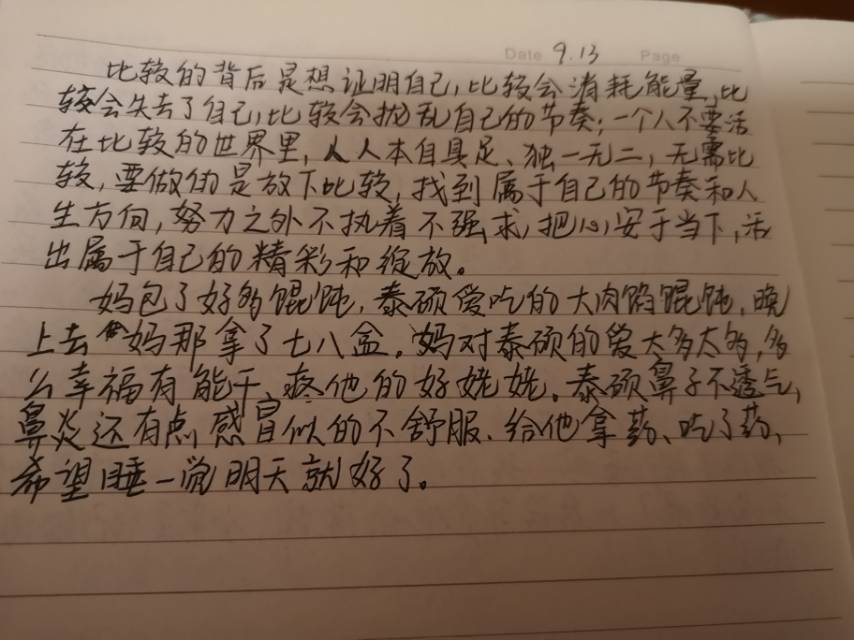 Date 9.13 Page
比较的背后是想证明自己,比较会消耗能量,比
较会失去了自己,比较会扰乱自己的节奏;一个人不要活
在比较的世界里,人人本自具足、独一无二,无需比
较,要做的是放下比较,找到属于自己的节奏和人
生方向,努力之外不执着不强求,把心安于当下,活
出属于自己的精彩和绽放。
妈包了好多馄饨,泰硕爱吃的大肉馅馄饨,晚
上去妈那拿了七八盒。妈对泰硕的爱太多太多,多
么幸福有能干、疼他的好姥姥。泰硕鼻子不透气,
鼻炎还有点感冒似的不舒服、给他拿药、吃了药,
希望睡一觉明天就好了。